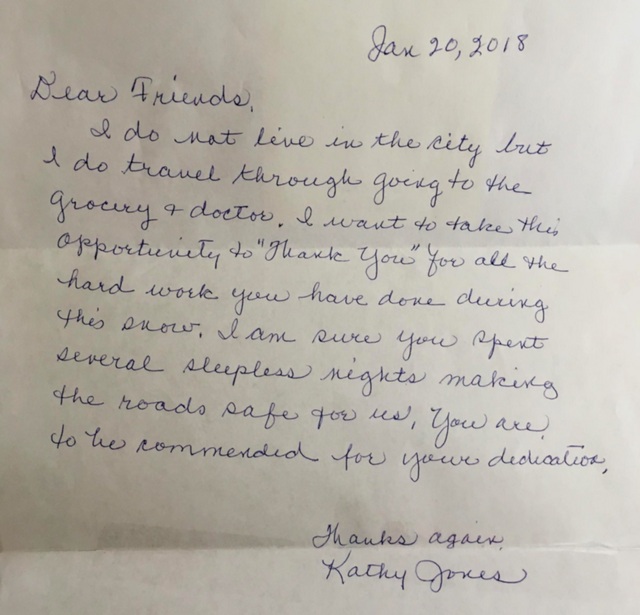 Jan 20, 2018
Dear Friends,
I do not live in the city but
I do travel through going to the
grocery & doctor. I want to take this
opportunity to "Thank You" for all the
hard work you have done during
this snow. I am sure you spent
several sleepless nights making
the roads safe for us. You are
to be commended for your dedication.
Thanks again,
Kathy Jones